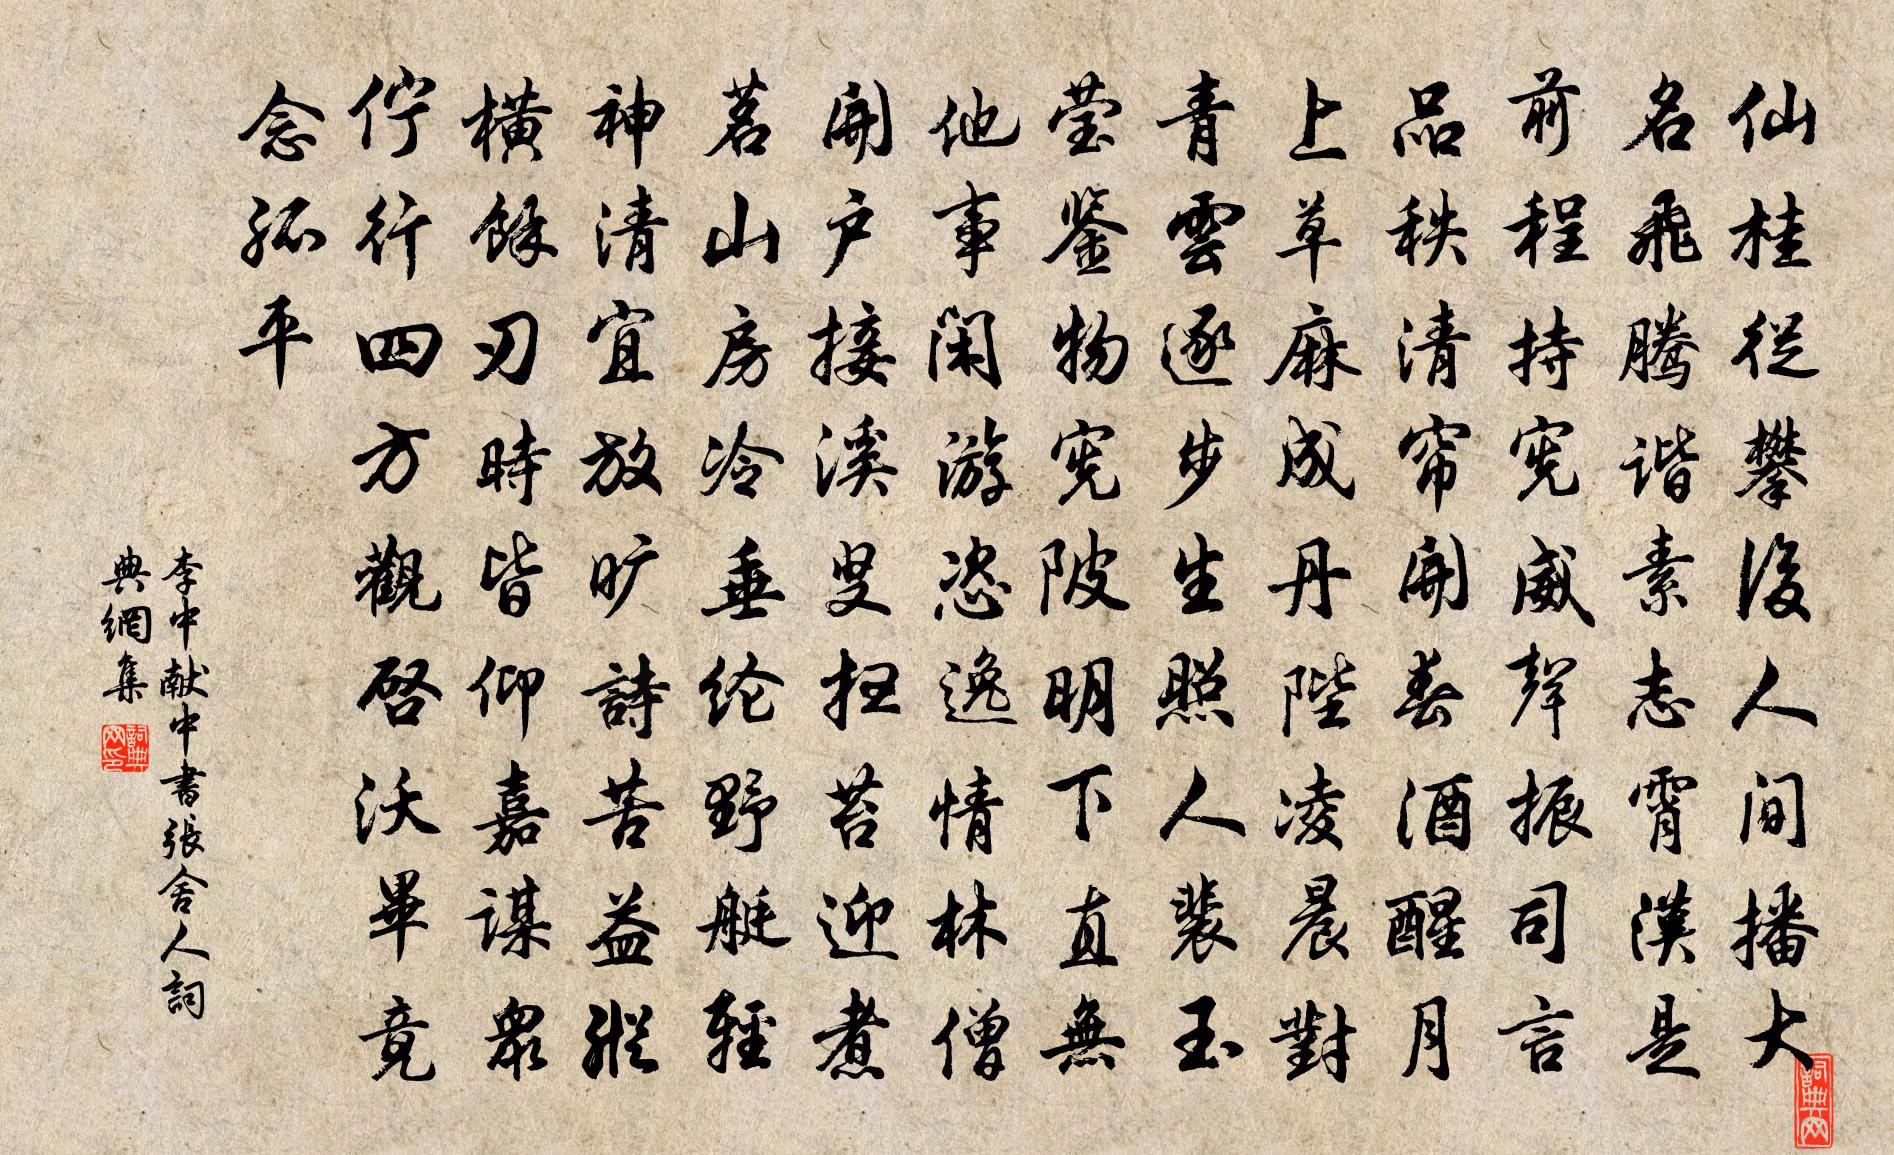 仙桂從攀後人间播大
名飛腾谐素志霄漢是
前程持宪威聲振司言
品秩清帘開春酒醒月
上草麻成丹陛凌晨對
青雲逐步生照人裴玉
莹鉴物宪陂明下直無
他事闲游恣逸情林僧
開户接溪叟扫苔迎煮
茗山房冷垂纶野艇輕
神清宜放旷詩苦益縱
橫餘刃時皆仰嘉謀衆
佇行四方觀啓沃畢竟
念孤平
李中献中書張舍人詞
典網集
詞典网印
詞典网